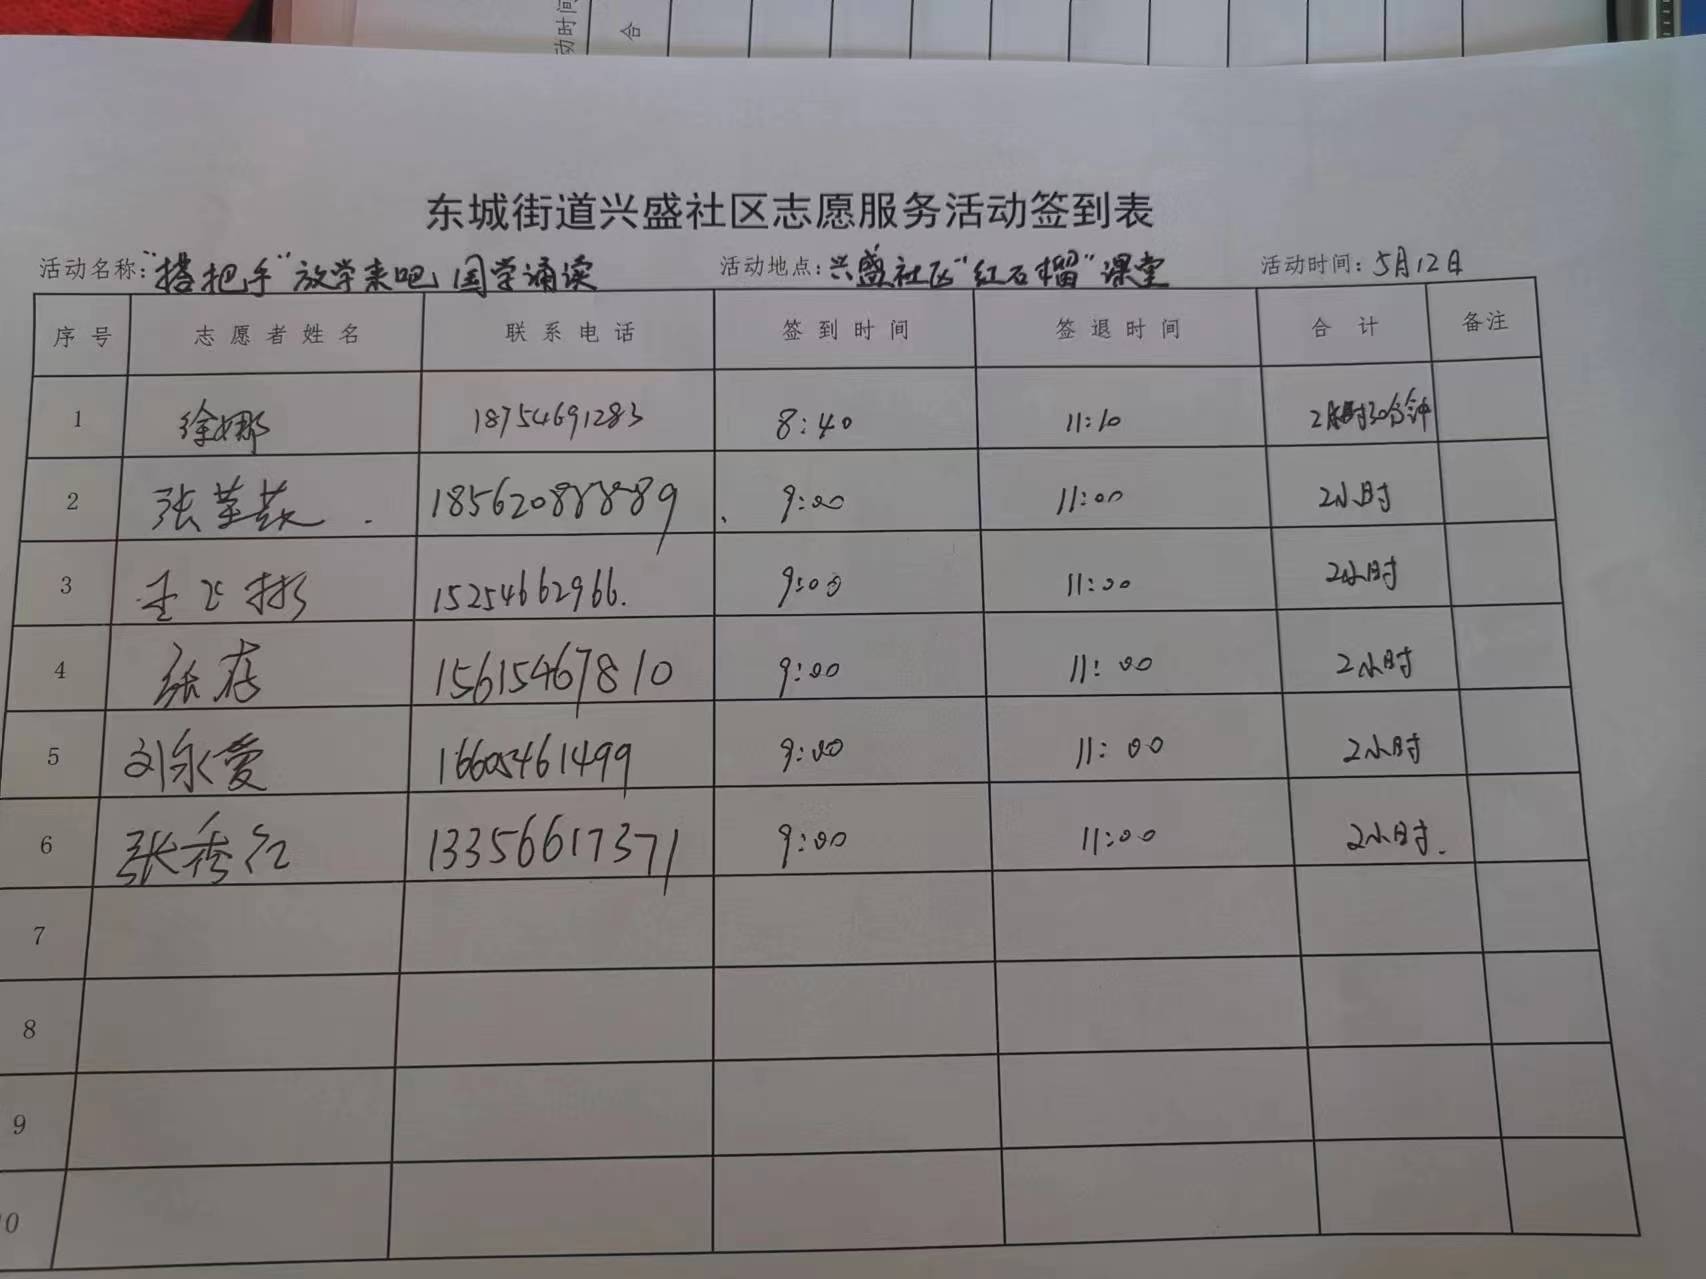 动时间
合
东城街道兴盛社区志愿服务活动签到表
活动名称:“搭把手”放学来吧 国学诵读 活动地点:兴盛社区“红石榴”课堂 活动时间:5月12日
序号 志愿者姓名 联系电话 签到时间 签退时间 合计 备注
1 徐娜 18754691283 8:40 11:10 2小时30分钟
2 张 18562088889 9:00 11:00 2小时
3 王 15254662966. 9:00 11:00 2小时
4 张存 15615467810 9:00 11:00 2小时
5 刘永爱 16605461499 9:00 11:00 2小时
6 张秀红 13356617371 9:00 11:00 2小时.
7
8
9
10